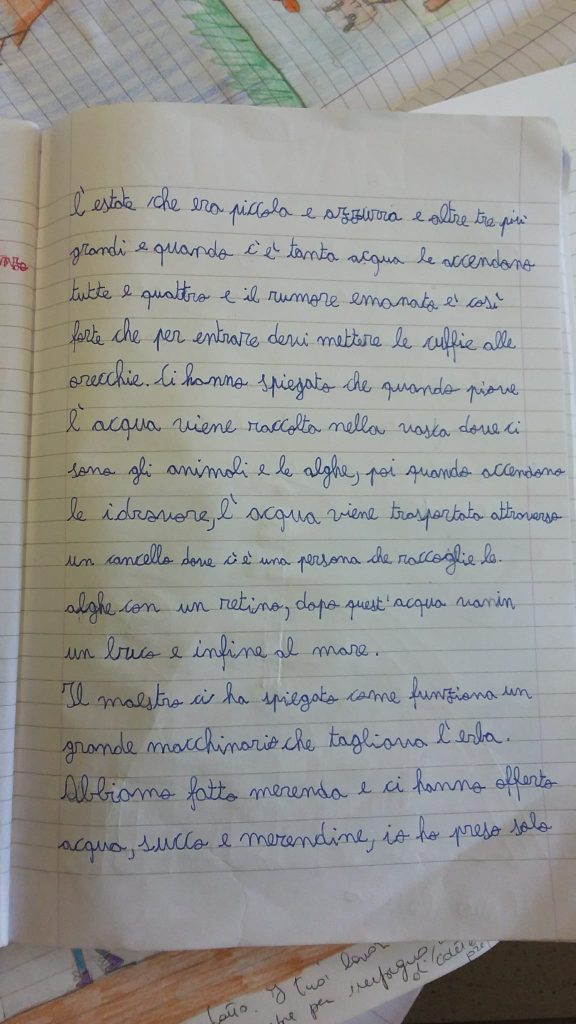 l'estate che era piccola e azzurra e altre tre più
grandi e quando c'è tanta acqua le accendono
tutte e quattro e il rumore emanato è così
forte che per entrare devi mettere le cuffie alle
orecchie. Ci hanno spiegato che quando piove
l'acqua viene raccolta nella vasca dove ci
sono gli animali e le alghe, poi quando accendono
le idrovore, l'acqua viene trasportata attraverso
un cancello dove c'è una persona che raccoglie le
alghe con un retino, dopo quest'acqua va in
un buco e infine al mare.
Il maestro ci ha spiegato come funziona un
grande macchinario che tagliava l'erba.
Abbiamo fatto merenda e ci hanno offerto
acqua, succo e merendine, io ho preso solo